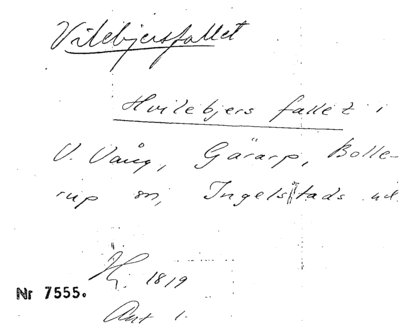 Vilebjersfallet
Hvilebjers fallet i
V. Vång, Gärarp, Bolle-
rup sn, Ingelstads hd.
1819
Nr 7555.
Akt 1.